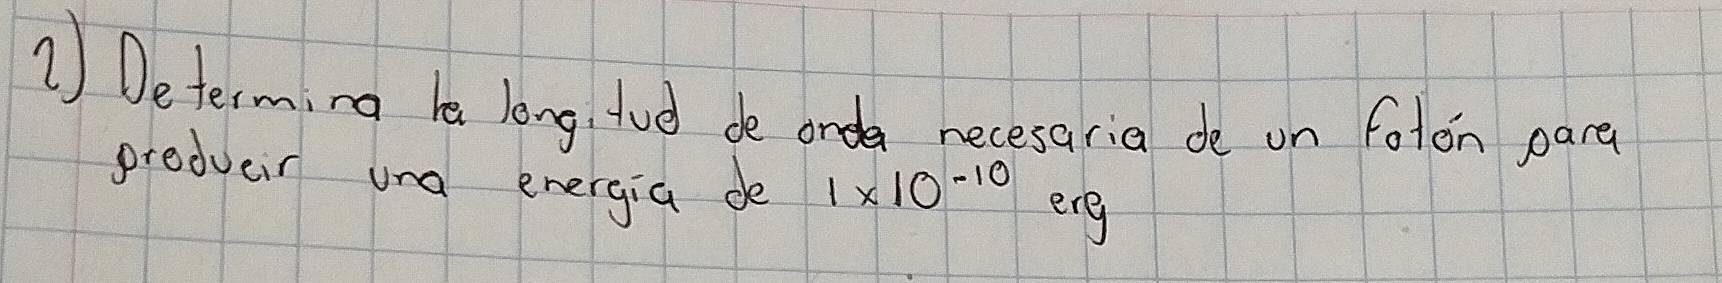 2) Determina la longitud de onda necesaria de un fotón para
producir una energía de 1x10⁻¹⁰ erg